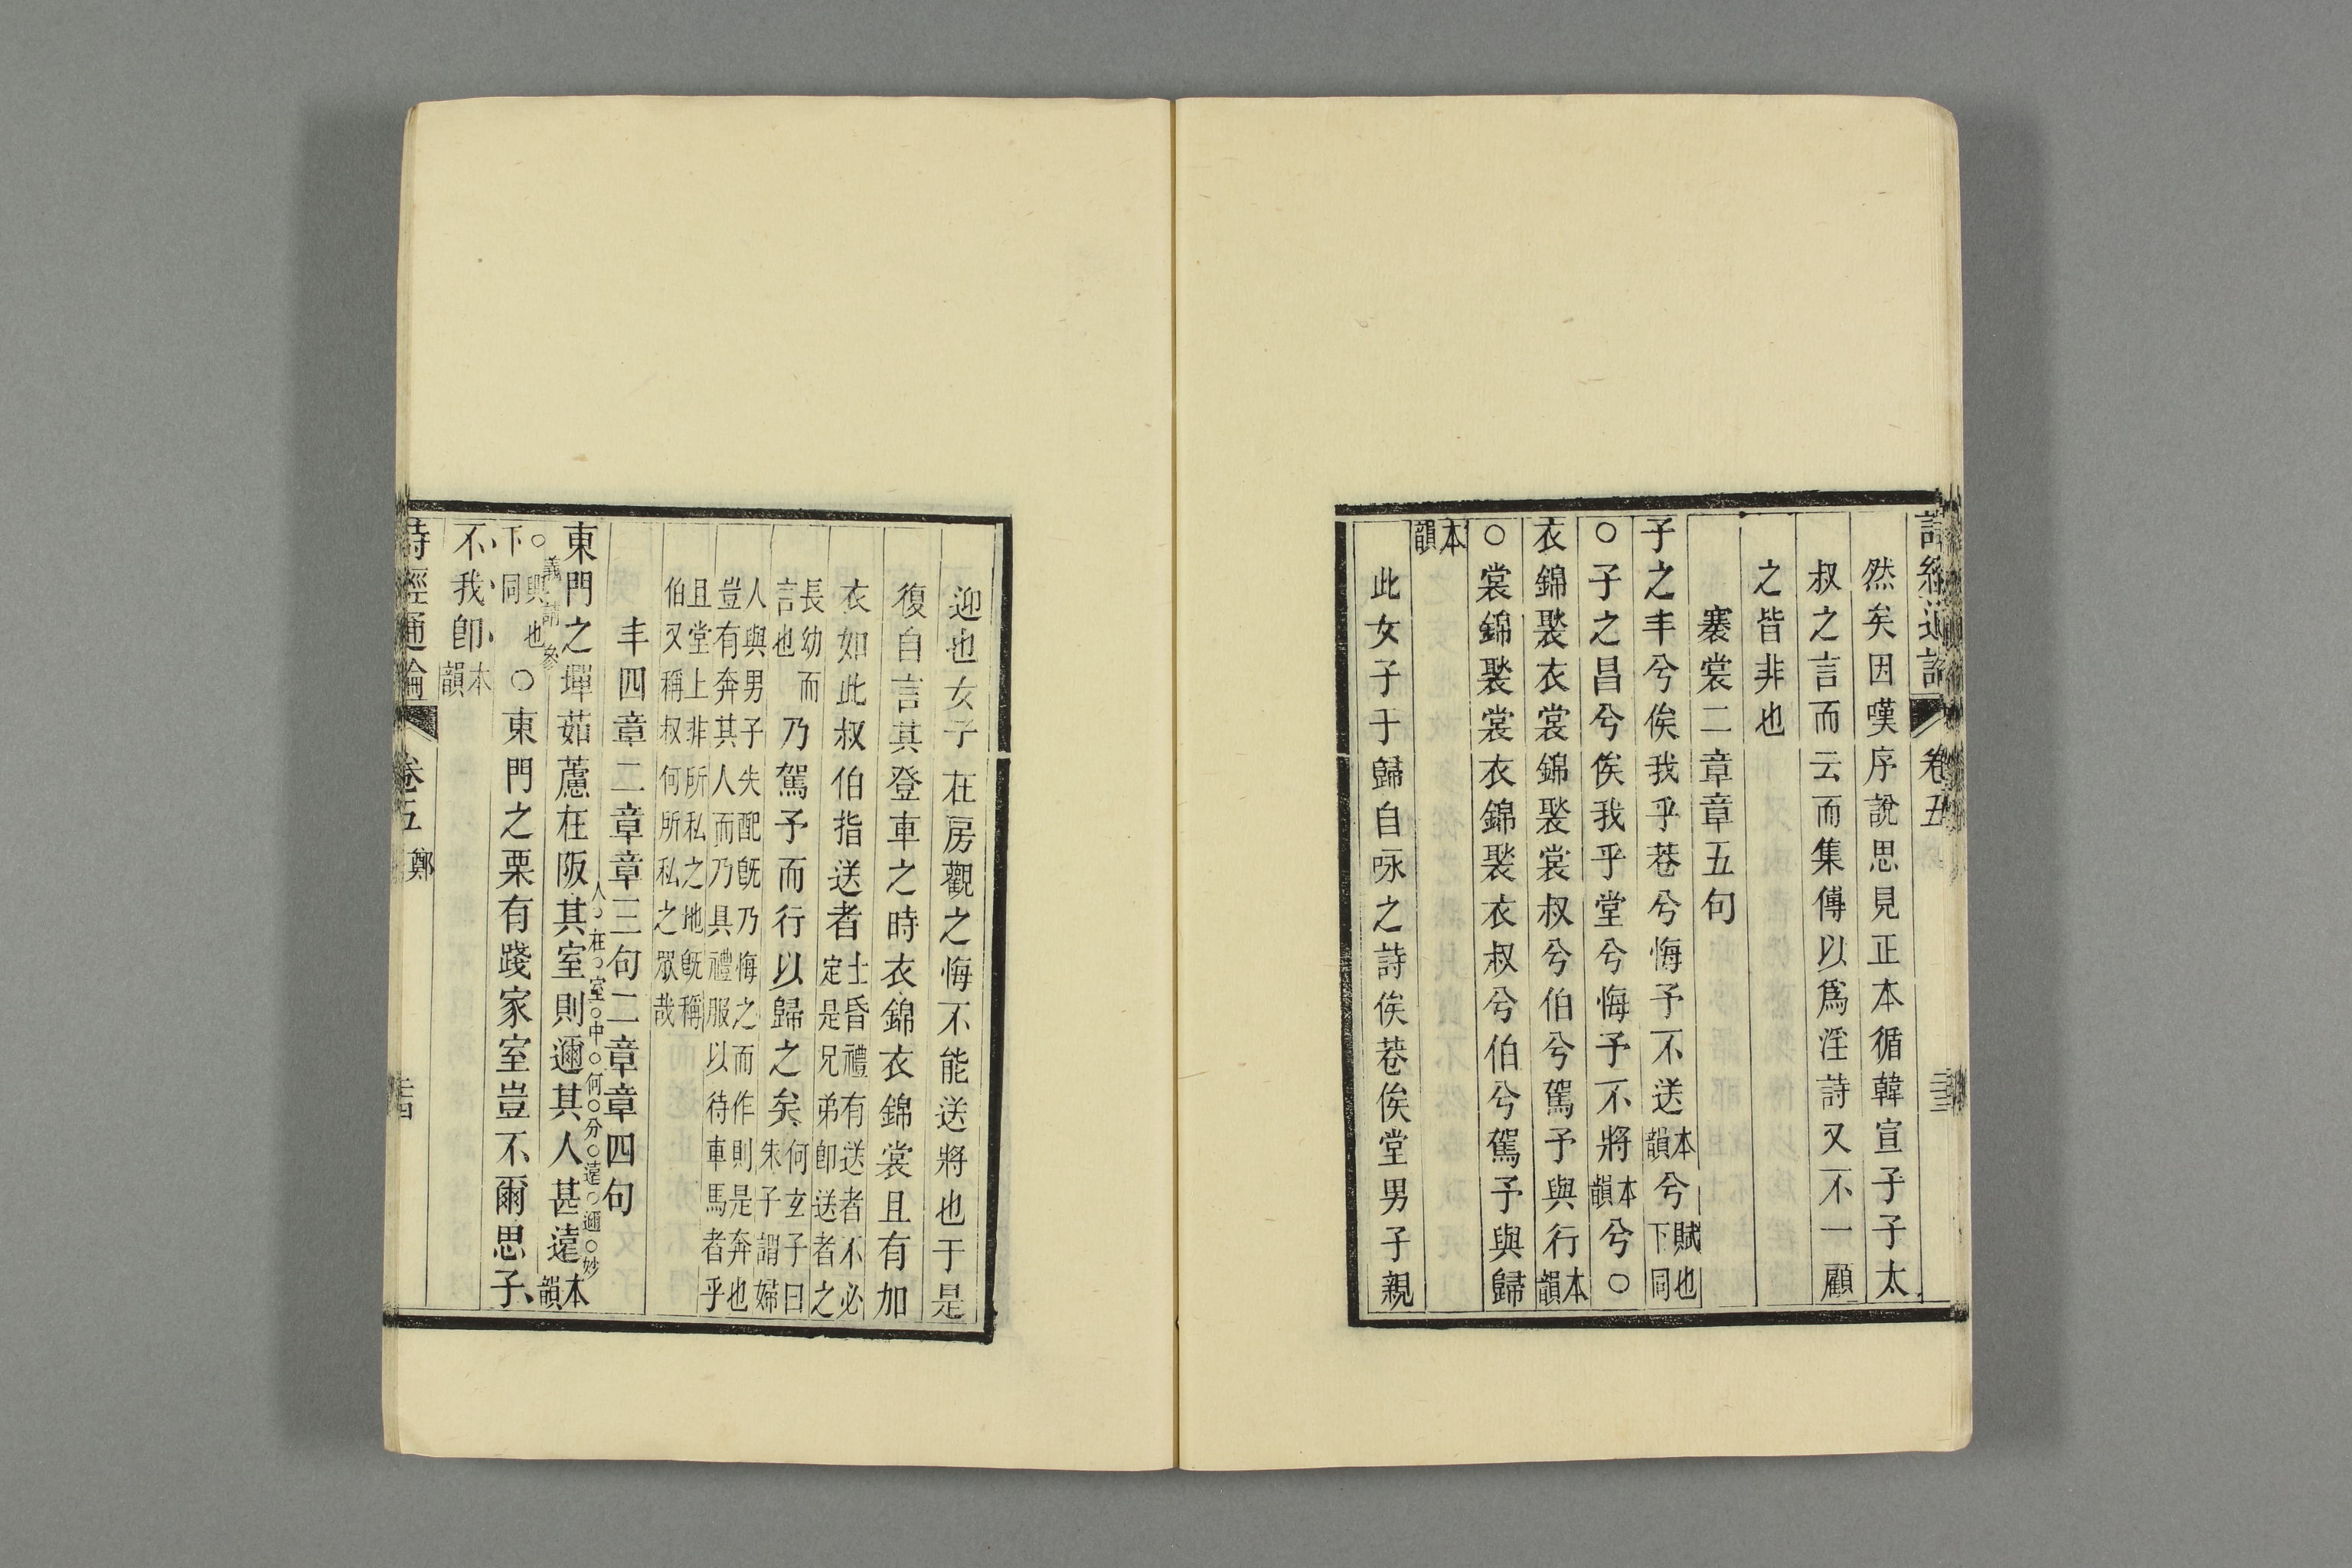 詩經通論 卷五
然矣因嘆序說思見正本循韓宣子子太
叔之言而云而集傳以爲淫詩又不一顧
之皆非也
褰裳二章章五句
子之丰兮俟我乎巷兮悔予不送本韻兮賦也下同
○子之昌兮俟我乎堂兮悔予不將本韻兮○
衣錦褧衣裳錦褧裳叔兮伯兮駕予與行本韻
○裳錦褧裳衣錦褧衣叔兮伯兮駕予與歸
本韻
此女子于歸自咏之詩俟巷俟堂男子親
迎也女子在房觀之悔不能送將也于是
復自言其登車之時衣錦衣錦裳且有加
衣如此叔伯指送者士昏禮有送者不必定是兄弟卽送者之
長幼而言也乃駕予而行以歸之矣何玄子曰朱子謂婦
人與男子失配旣乃悔之而作則是奔也豈有奔其人而乃具禮服以待車馬者乎
且堂上非所私之地旣稱伯又稱叔何所私之眾哉
丰四章二章章三句二章章四句
東門之墠茹藘在阪其室則邇其人甚遠本韻
人在室中何分遠邇妙
○興也下同○東門之栗有踐家室豈不爾思子
不我卽本韻
詩經通論 卷五 鄭